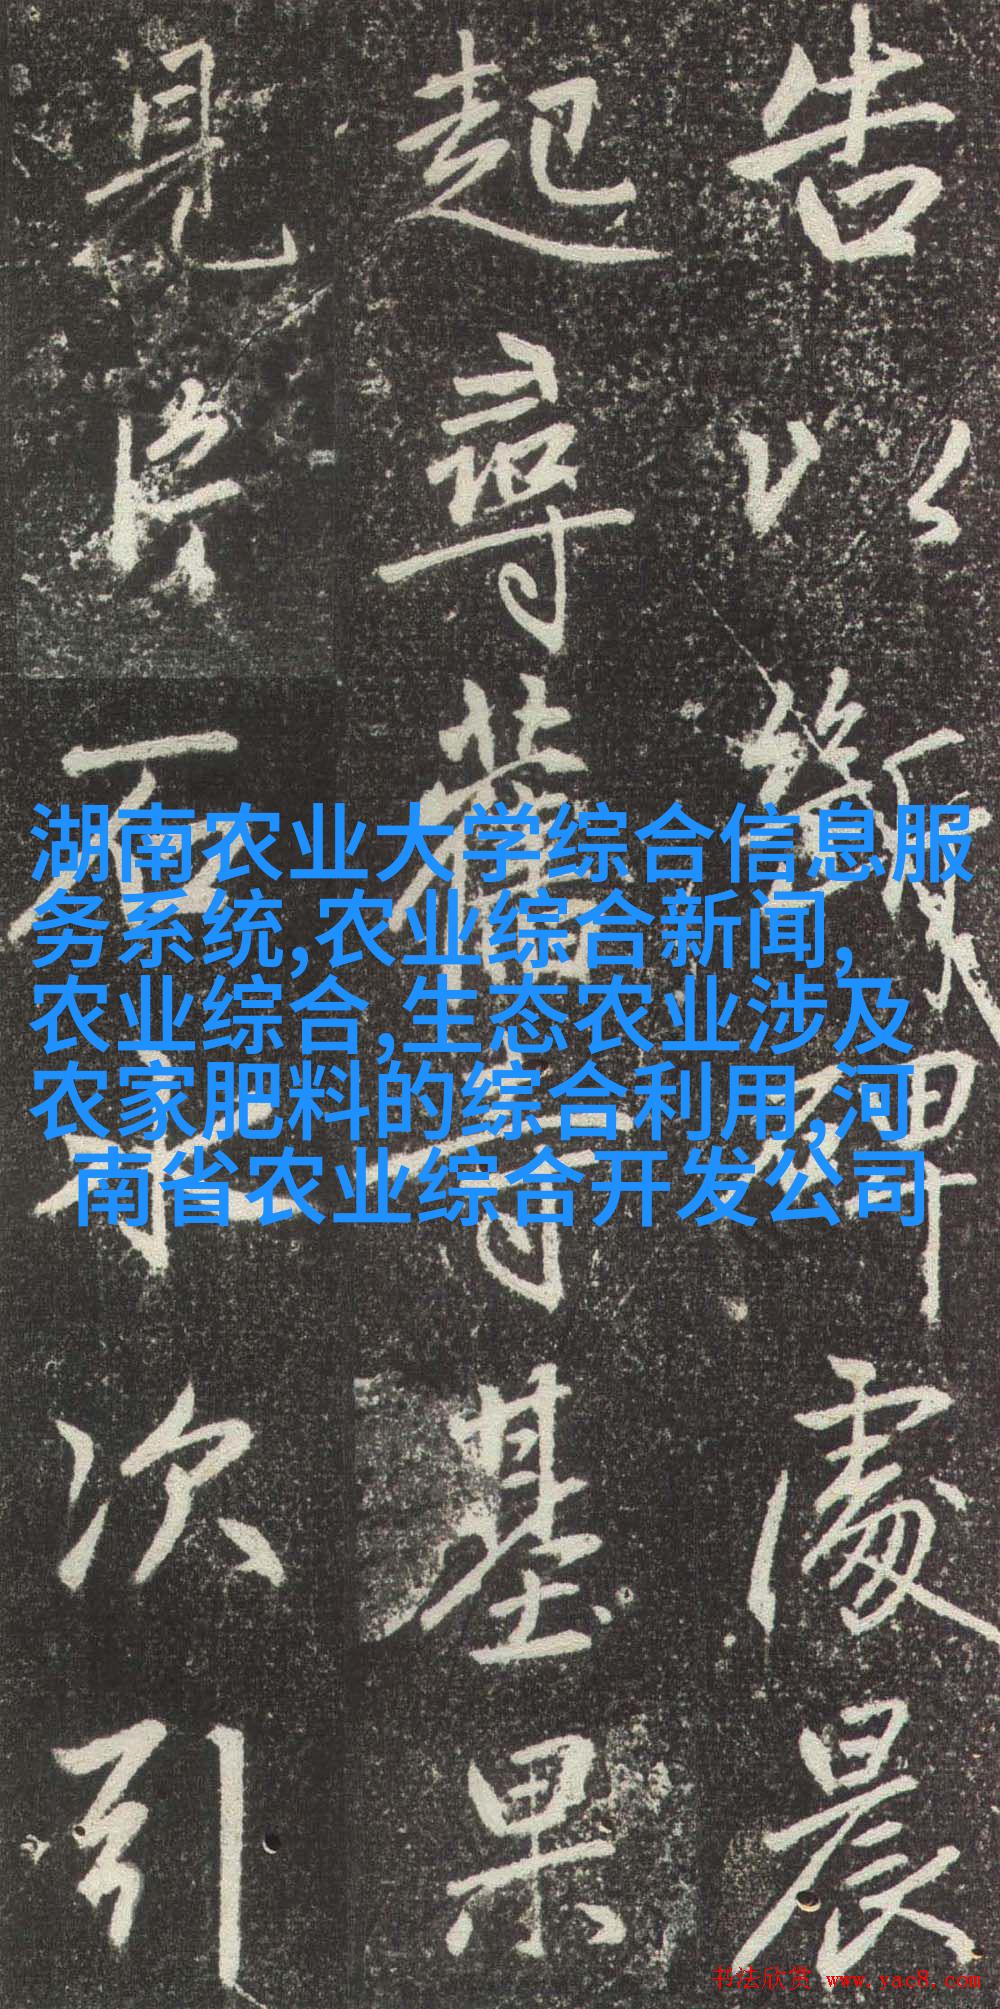 告以碑處晨
起尋舊寺基果
見片石次引
湖南农业大学综合信息服
务系统,农业综合新闻,
农业综合,生态农业涉及
农家肥料的综合利用,河
南省农业综合开发公司
书法欣赏 www.yac8.com